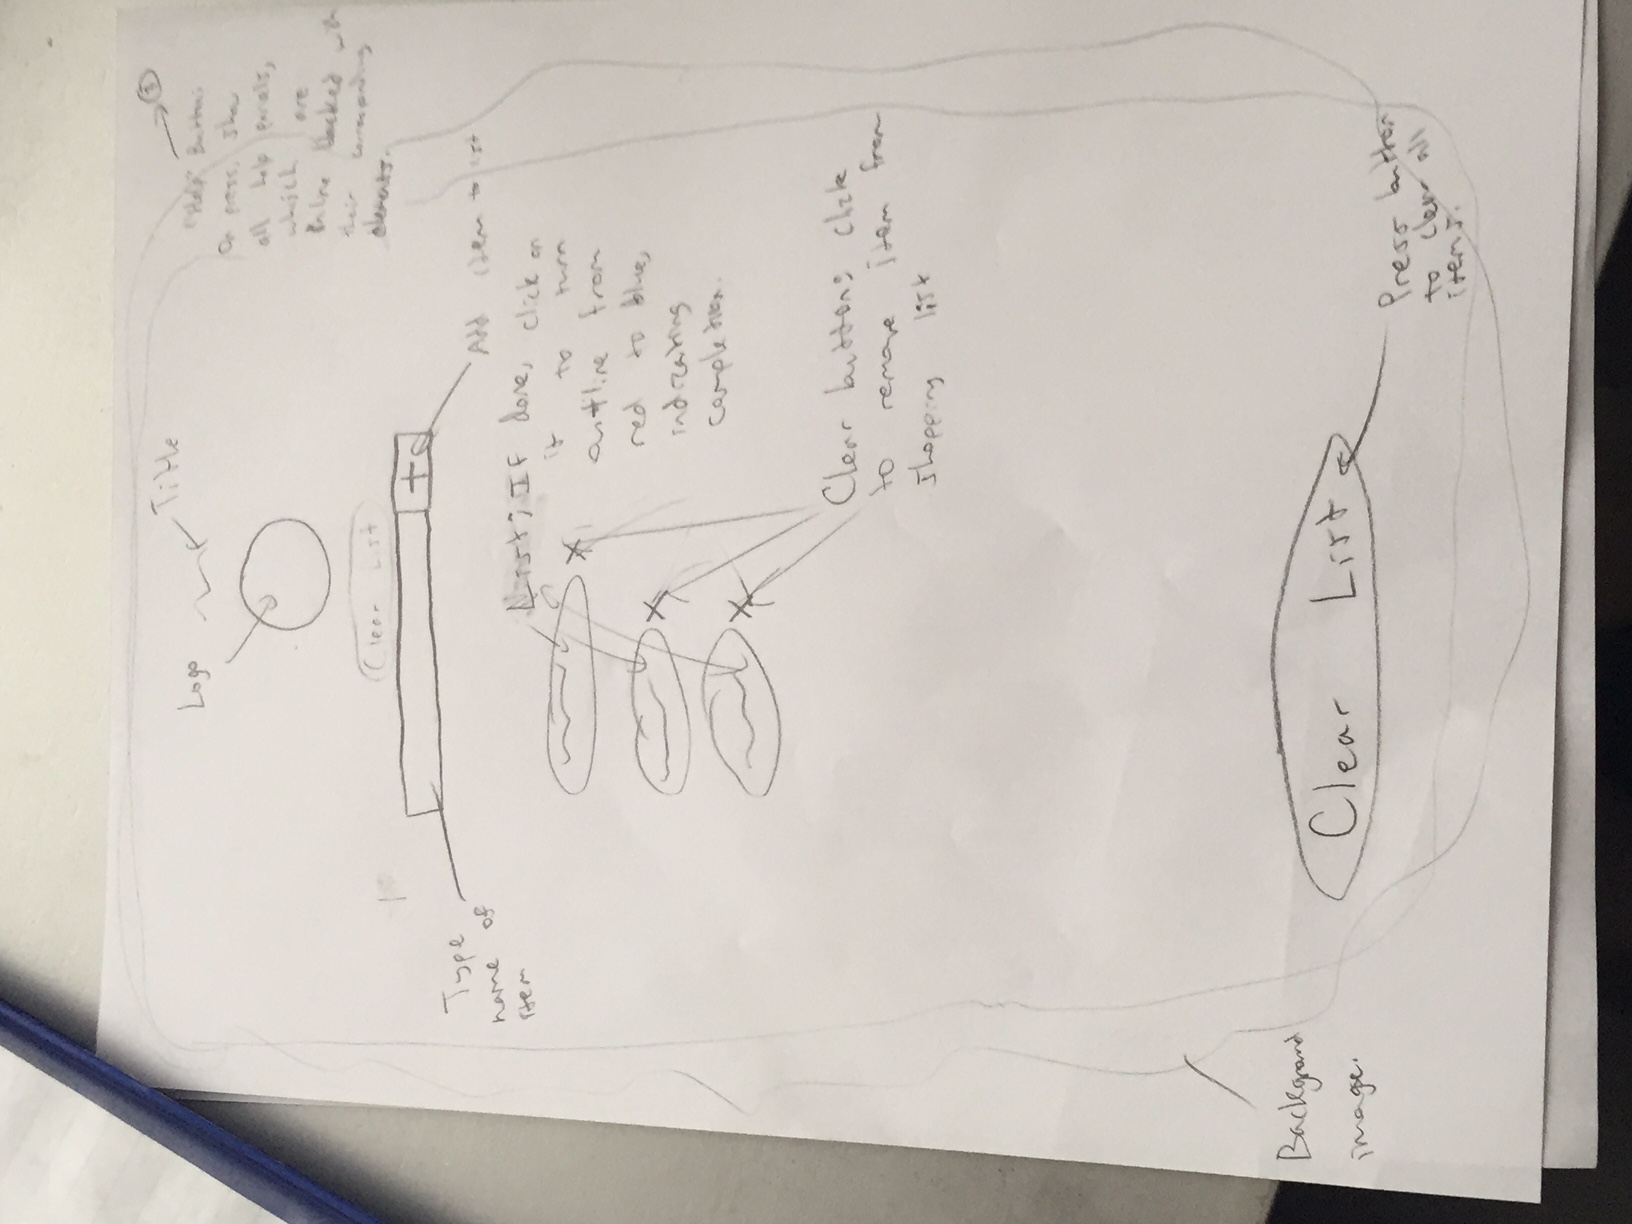 Title
Logo
"Help" Button:
On press, show
all help panels,
which are
inline blocked with
their corresponding
elements.
Clear List
+
Type
name of
item
Add item to list
List; If done, click on
it to turn
outline from
red to blue,
indicating
completion.
Clear button; click
to remove item from
shopping list
Background
image.
Clear List
Press button
to clear all
items.